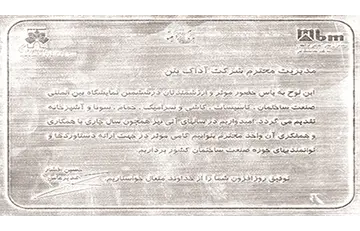 مدیریت محترم شرکت آداک بتن
این لوح به پاس حضور موثر و ارزشمندتان در ششمین نمایشگاه بین المللی
صنعت ساختمان ، تاسیسات ، کاشی و سرامیک ، حمام ، سونا و آشپزخانه
تقدیم می گردد. امید واریم در سالهای آتی نیز همچون سال جاری با همکاری
و همفکری آن واحد محترم بتوانیم گامی موثر در جهت ارائه دستاوردها و
توانمندیهای حوزه صنعت ساختمان کشور برداریم.
توفیق روزافزون شما را از خداوند متعال خواستاریم.